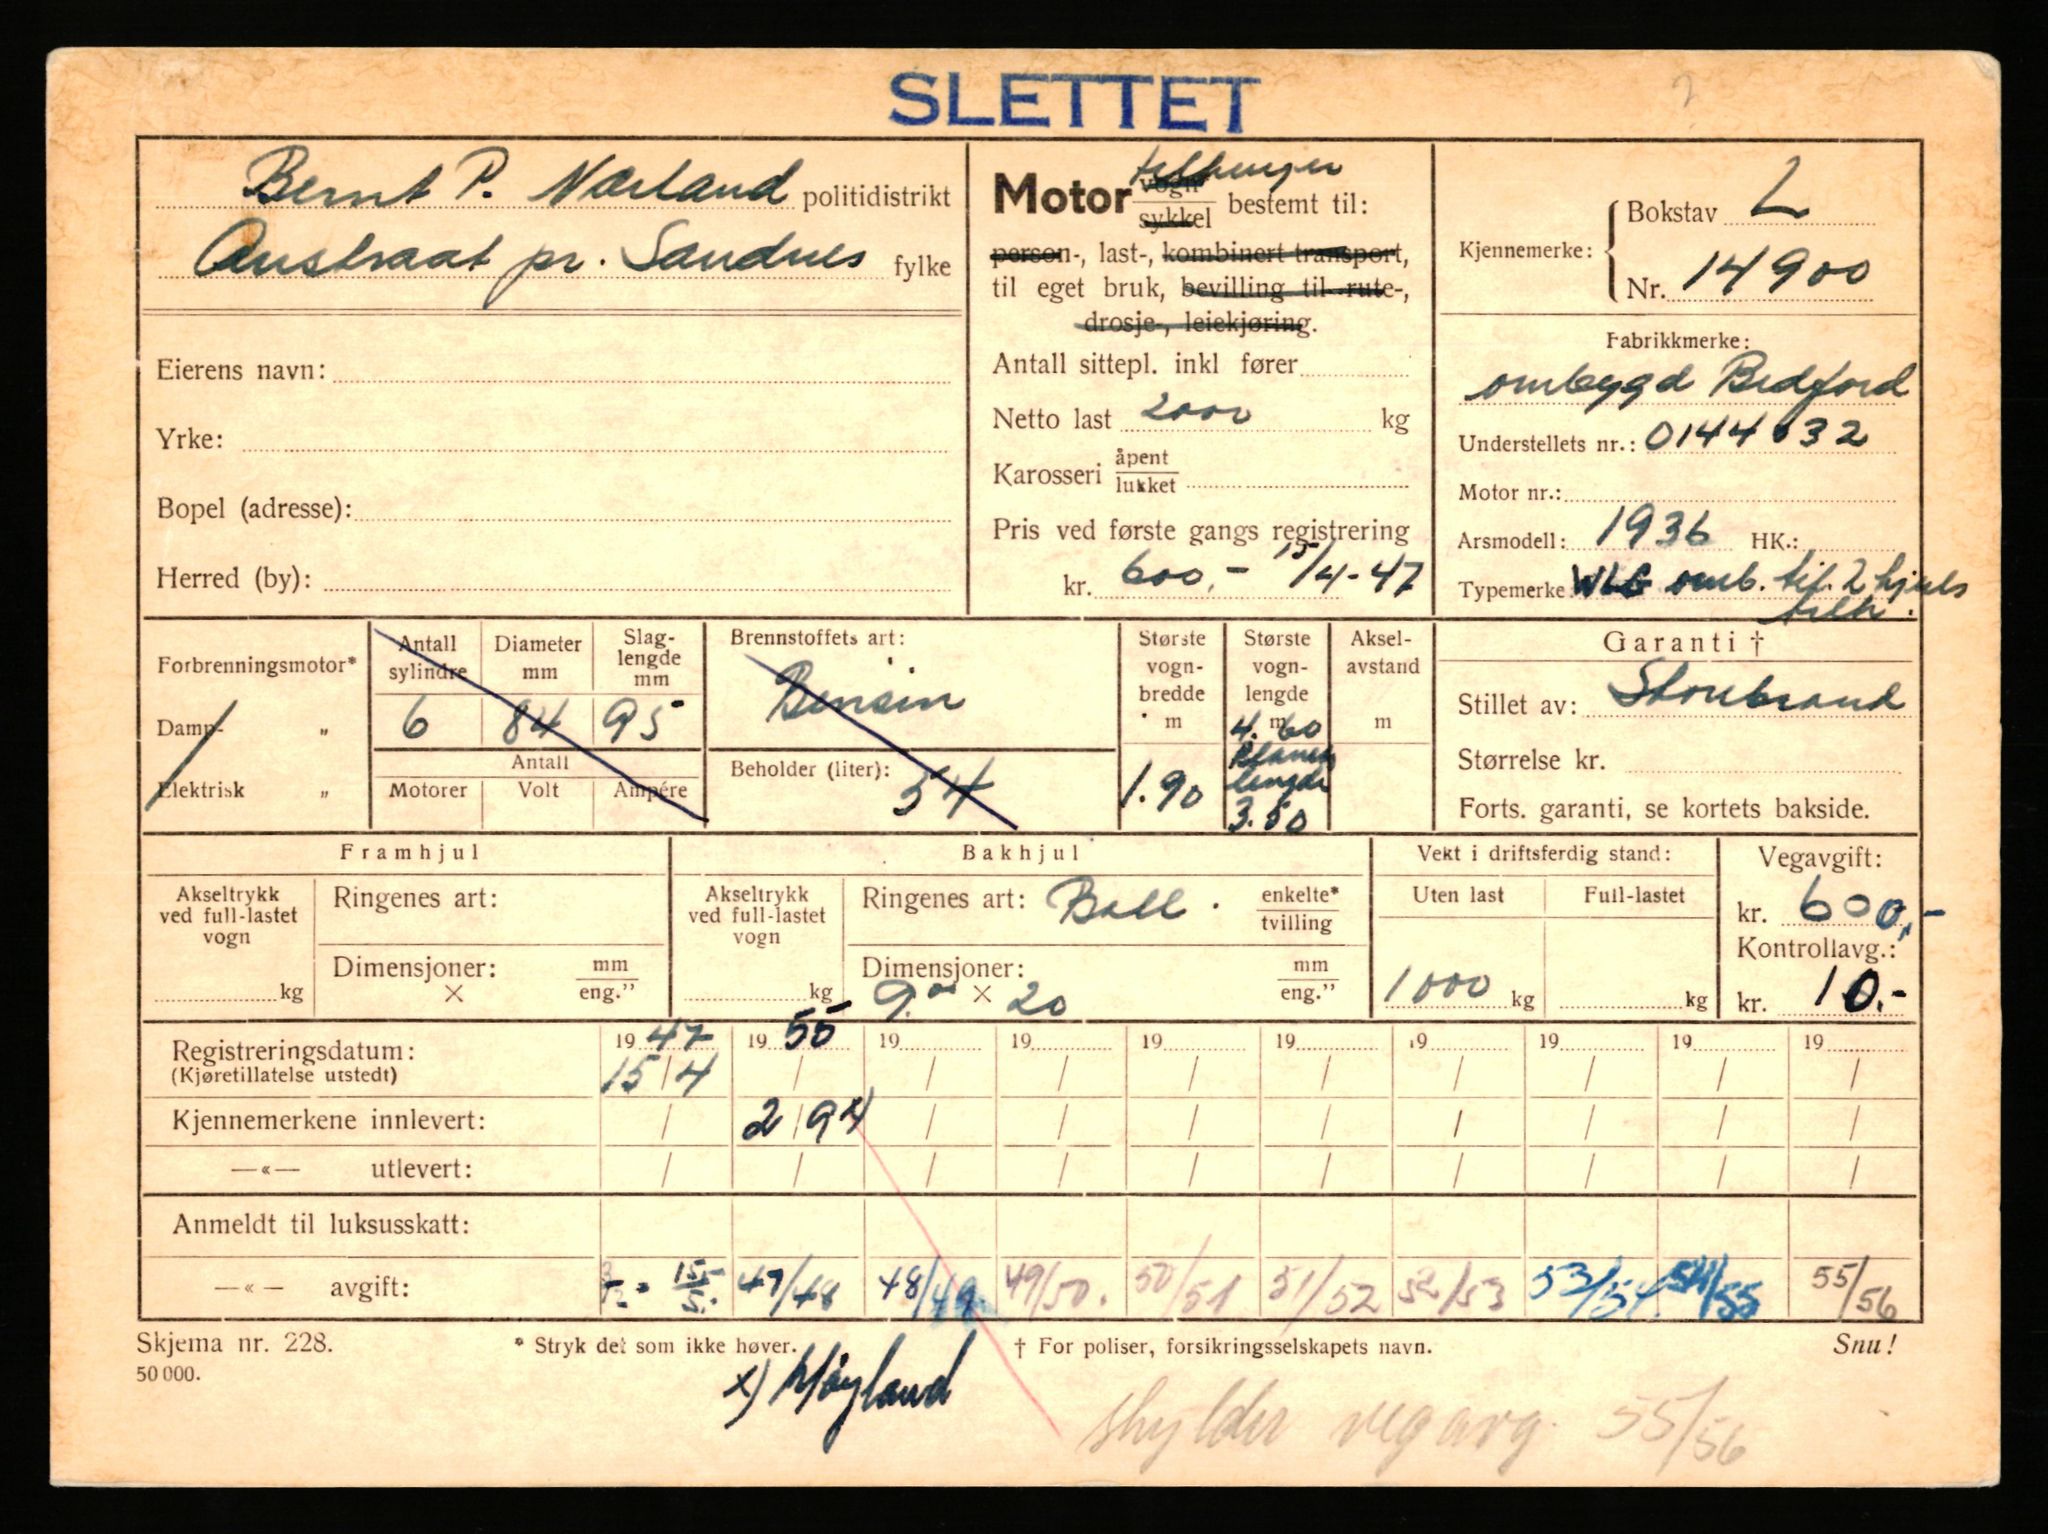 SLETTET
Bernt P. Nærland politidistrikt
Austraat pr. Sandnes fylke
Eierens navn:
Yrke:
Bopel (adresse):
Herred (by):
Motor vogn/sykkel tilhenger bestemt til:
person-, last-, kombinert transport,
til eget bruk, bevilling til rute-,
drosje-, leiekjøring.
Antall sittepl. inkl fører
Netto last 2000 kg
Karosseri åpent/lukket
Pris ved første gangs registrering
kr. 600,- 15/4-47
Kjennemerke: Bokstav L
Nr. 14900
Fabrikkmerke:
ombygd Bedford
Understellets nr.: 0144632
Motor nr.:
Arsmodell: 1936 HK.:
Typemerke: WLG omb. til 2 hjuls
tilh.
Forbrenningsmotor*
Damp- „
Elektrisk „
Antall sylindre
6
Diameter mm
84
Slag-lengde mm
95
Antall
Motorer Volt Ampére
Brennstoffets art:
Bensin
Beholder (liter):
54
Største vogn-bredde m
1.90
Største vogn-lengde m
4.60
Planets
lengde
3.50
Aksel-avstand m
Garanti †
Stillet av: Storebrand
Størrelse kr.
Forts. garanti, se kortets bakside.
Framhjul
Akseltrykk ved full-lastet vogn
kg
Ringenes art:
Dimensjoner: mm/eng."
×
Bakhjul
Akseltrykk ved full-lastet vogn
kg
Ringenes art: Ball. enkelte*/tvilling
Dimensjoner: mm/eng."
9.00 × 20
Vekt i driftsferdig stand:
Uten last Full-lastet
1000 kg kg
Vegavgift:
kr. 600,-
Kontrollavg.:
kr. 10.-
Registreringsdatum: 1947 1955 19 19 19 19 19 19 19 19
(Kjøretillatelse utstedt) 15/4 / / / / / / / / /
Kjennemerkene innlevert: / 2/9 x) / / / / / / / /
—«— utlevert: / / / / / / / / / /
Anmeldt til luksusskatt:
—«— avgift: 15/5. 47/48 48/49 49/50. 50/51 51/52 52/53 53/54. 54/55 55/56
Skjema nr. 228. * Stryk det som ikke høver. † For poliser, forsikringsselskapets navn. Snu!
50 000.
x) Høyland
skylder vegavg. 55/56